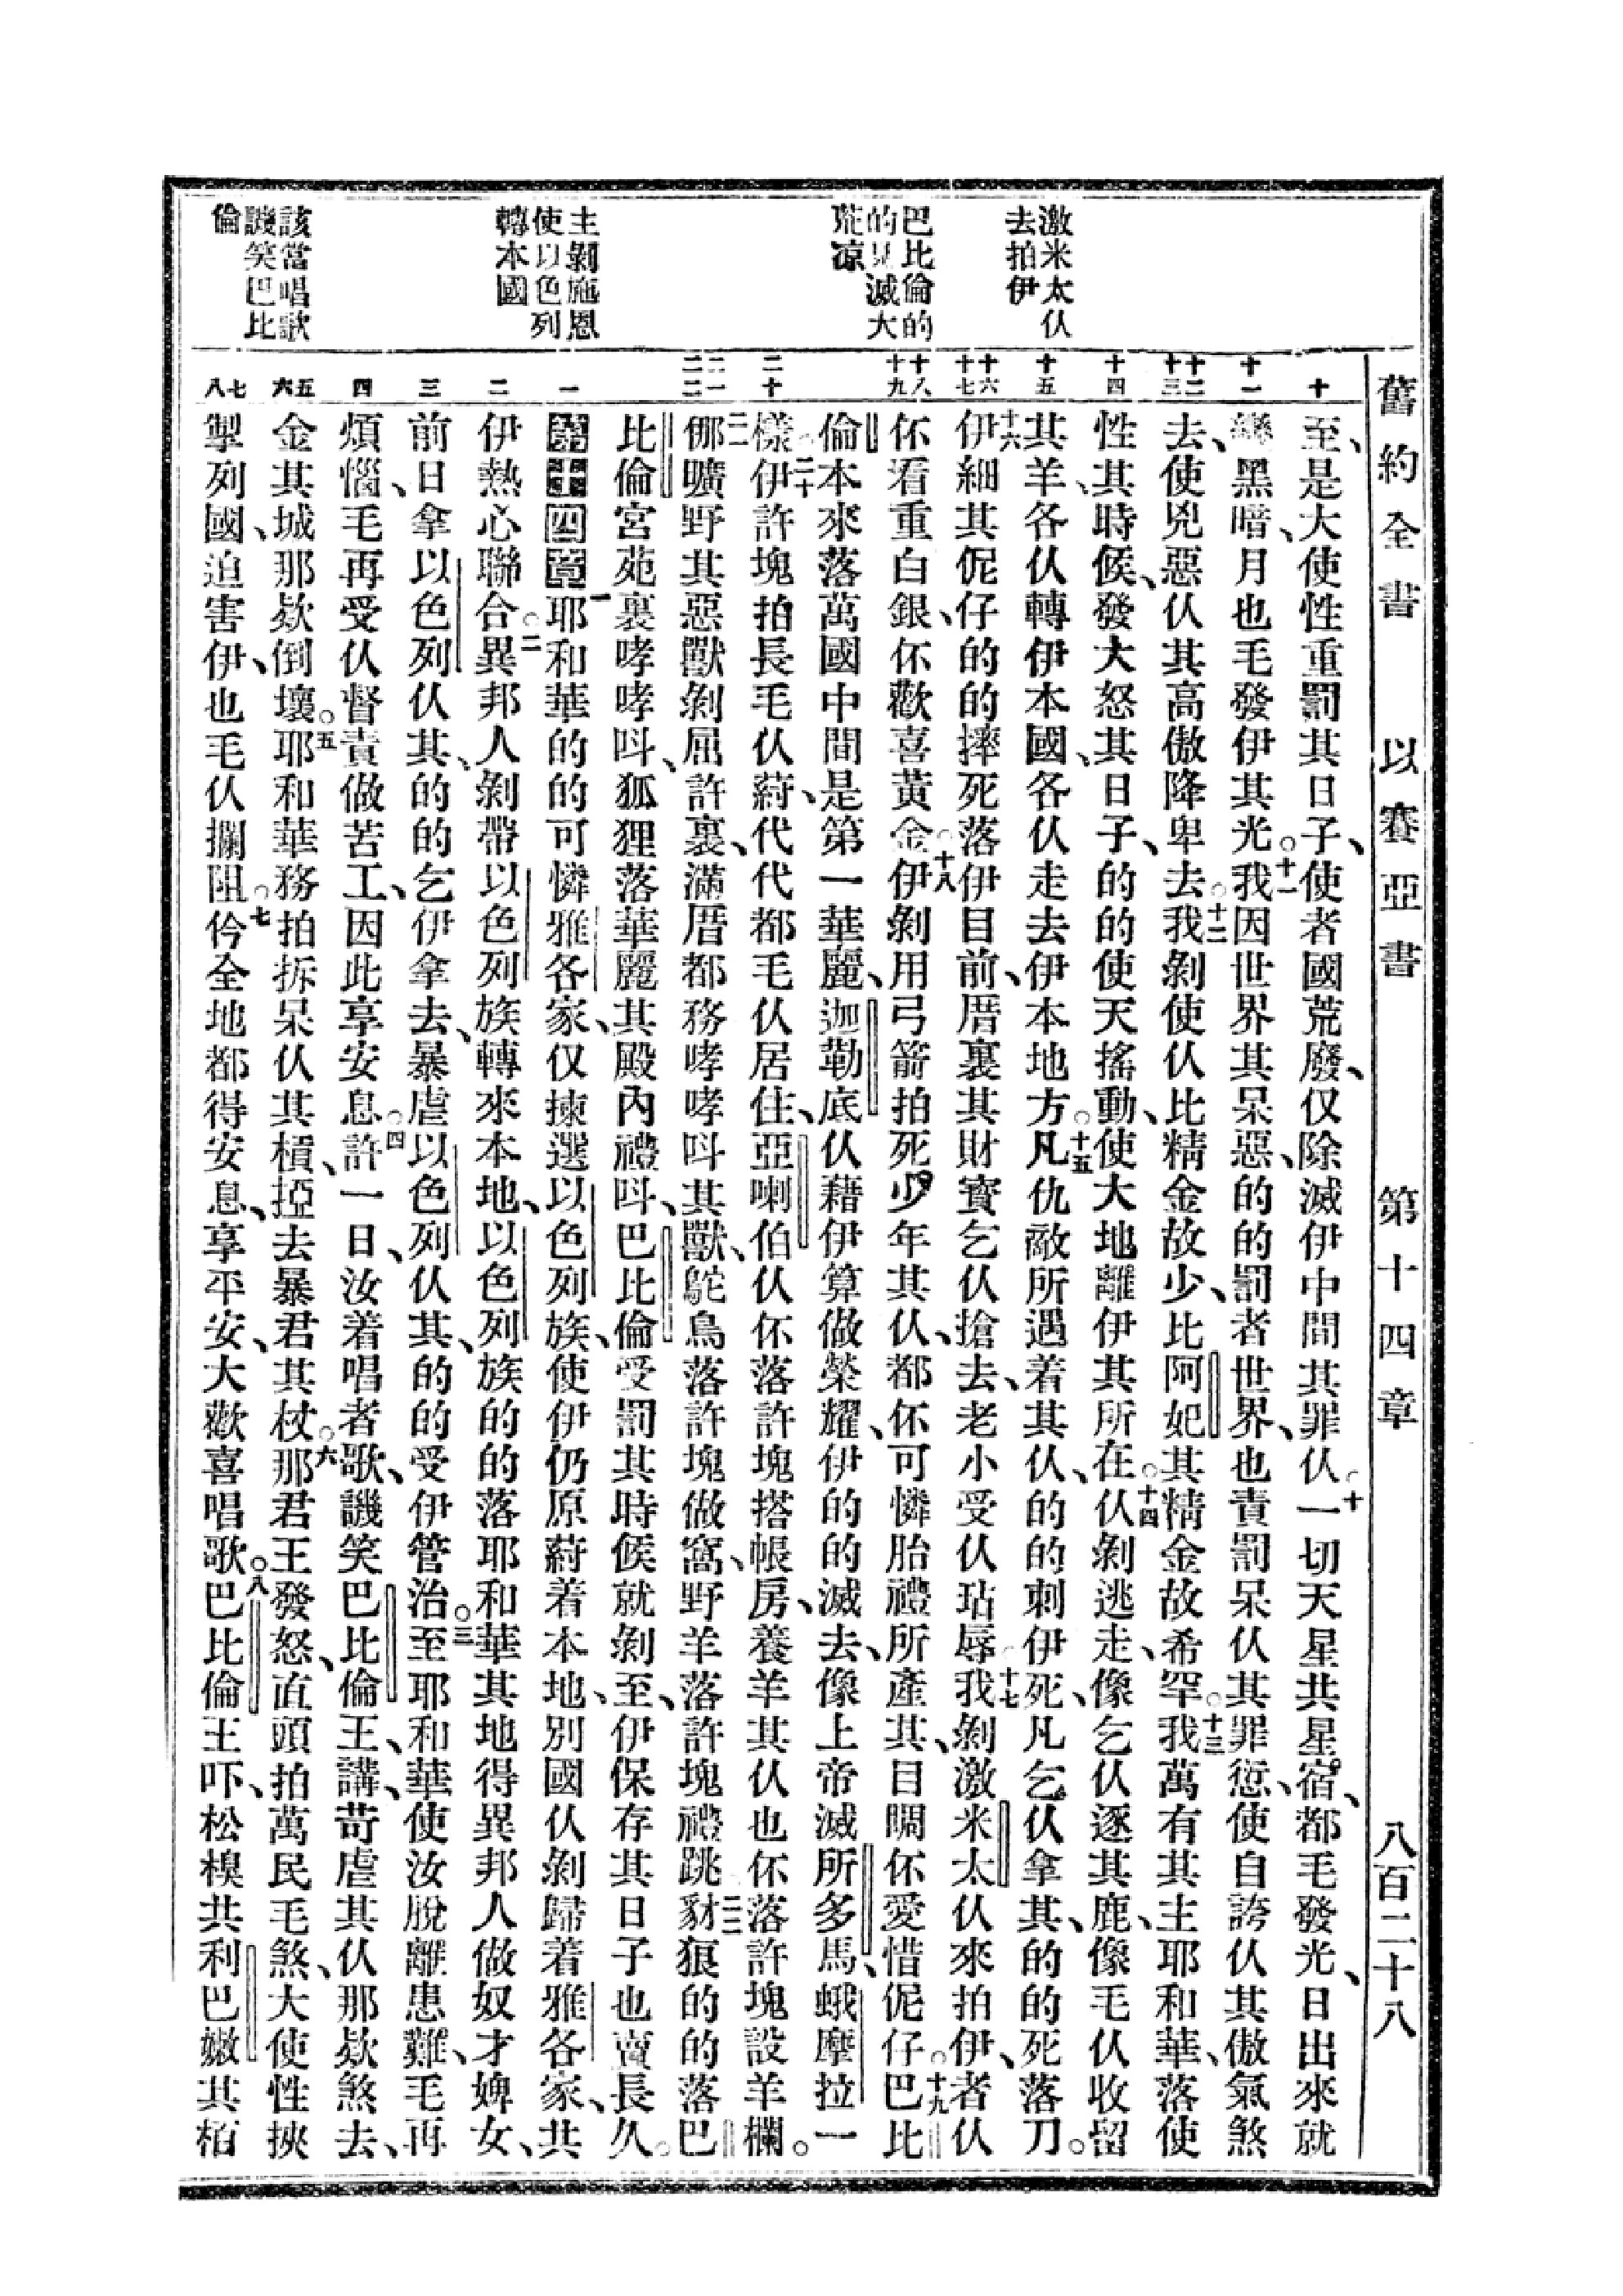 舊約全書　以賽亞書　第十四章　八百二十八
激米太仈
去拍伊
巴比倫的
的見滅大
荒凉
主剝施恩
使以色列
轉本國
該當唱歌
譏笑巴比
倫
十
十一
十二
十三
十四
十五
十六
十七
十八
十九
二十
二一
二二
一
二
三
四
五
六
七
八
至、是大使性重罰其日子、使者國荒廢、仅除滅伊中間其罪仈。十一切天星共星宿、都毛發光、日出來就
黑暗、月也毛發伊其光。十一我因世界其呆惡、的的罰者世界、也責罰呆仈其罪愆、使自誇仈其傲氣煞
去、使兇惡仈其高傲降卑去。十二我剝使仈比精金故少、比阿妃其精金故希罕。十三我萬有其主耶和華、落使
性其時候、發大怒其日子、的的使天搖動、使大地離伊其所在。十四仈剝逃走、像乞仈逐其鹿、像毛仈收留
其羊、各仈轉伊本國、各仈走去伊本地方。十五凡仇敵所遇着其仈、的的刺伊死、凡乞仈拿其、的的死落刀。
十六伊細其伲仔的的摔死落伊目前、厝裏其財寶乞仈搶去、老小受仈玷辱。十七我剝激米太仈來拍伊、者仈
伓看重白銀、伓歡喜黃金。十八伊剝用弓箭拍死少年其仈、都伓可憐胎禮所產其、目睭伓愛惜伲仔。十九巴比
倫本來落萬國中間是第一華麗、迦勒底仈藉伊算做榮耀、伊的的滅去、像上帝滅所多馬、蛾摩拉一
樣。二十伊許塊拍長毛仈葑、代代都毛仈居住、亞喇伯仈伓落許塊搭帳房、養羊其仈也伓落許塊設羊欄。
二一倻曠野其惡獸剝屈許裏、滿厝都務哮哮呌其獸、鴕鳥落許塊做窩、野羊落許塊禮跳。二二豺狼的的落巴
比倫宮苑裏哮哮呌、狐狸落華麗其殿內禮呌、巴比倫受罰其時候就剝至、伊保存其日子也賣長久。
第十四章一耶和華的的可憐雅各家、仅揀選以色列族、使伊仍原葑着本地、別國仈剝歸着雅各家、共
伊熱心聯合。二異邦人剝帶以色列族轉來本地、以色列族的的落耶和華其地得異邦人做奴才婢女、
前日拿以色列仈其、的的乞伊拿去、暴虐以色列仈其、的的受伊管治。三至耶和華使汝脫離患難、毛再
煩惱、毛再受仈督責做苦工、因此享安息。四許一日、汝着唱者歌、譏笑巴比倫王、講、苛虐其仈那欵煞去、
金其城那欵倒壞。五耶和華務拍拆呆仈其槓、挜去暴君其杖。六那君王發怒、直頭拍萬民毛煞、大使性挾
掣列國、迫害伊、也毛仈攔阻。七伶全地都得安息、享平安、大歡喜唱歌。八巴比倫王吓、松樉共利巴嫩其栢